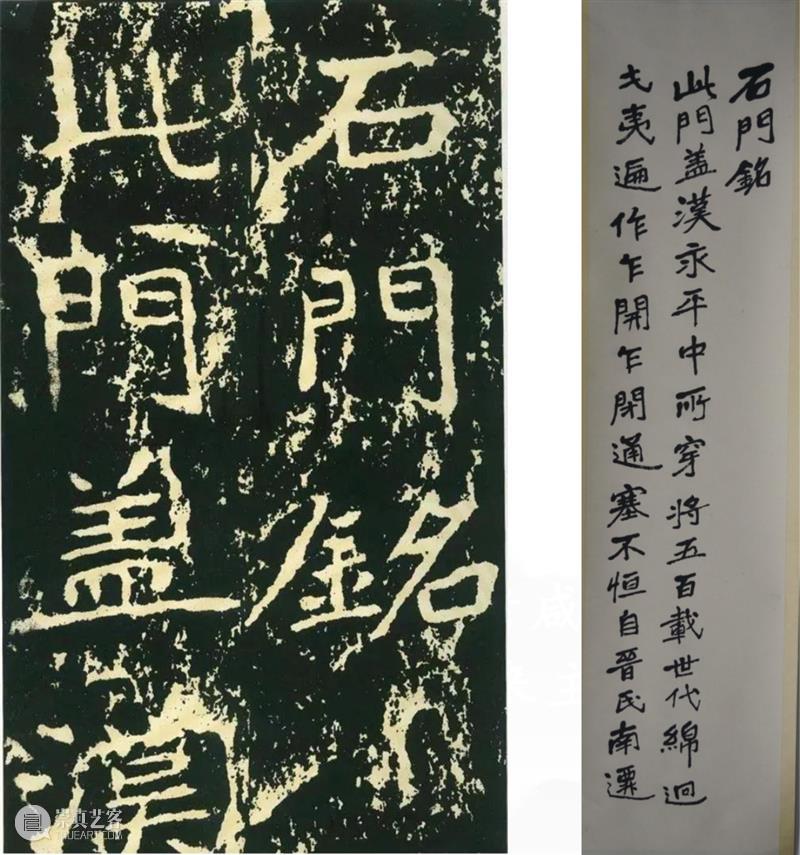 石門銘
此門盖漢
石門銘
此門盖漢永平中所穿將五百載世代綿迴
夷遍作乍開乍閉通塞不恒自晉氏南遷
崇真艺客
TRUEART.COM